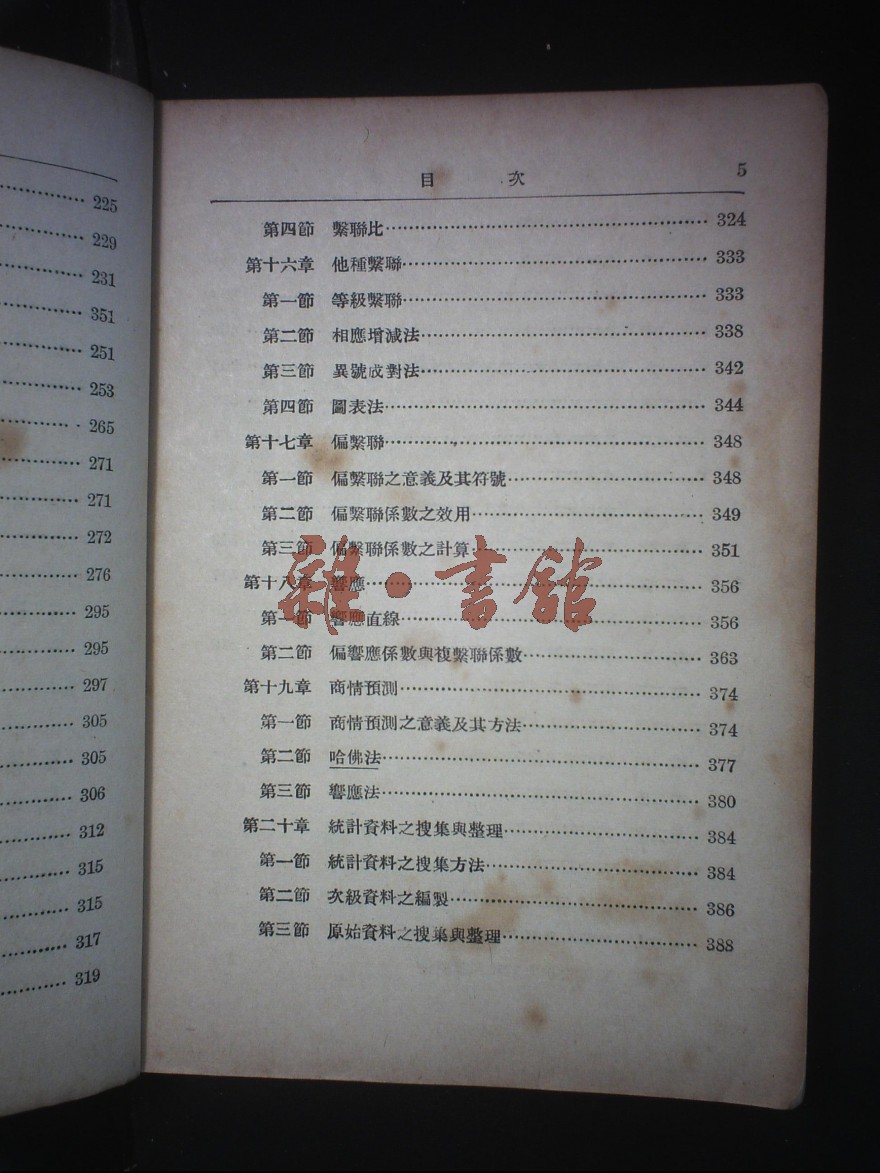 225
229
231
351
251
253
265
271
271
272
276
295
295
297
305
305
306
312
315
315
317
319
目 次 5
第四節 繫聯比 324
第十六章 他種繫聯 333
第一節 等級繫聯 333
第二節 相應增減法 338
第三節 異號成對法 342
第四節 圖表法 344
第十七章 偏繫聯 348
第一節 偏繫聯之意義及其符號 348
第二節 偏繫聯係數之效用 349
第三節 偏繫聯係數之計算 351
第十八章 響應 356
第一節 響應直線 356
第二節 偏響應係數與複繫聯係數 363
第十九章 商情預測 374
第一節 商情預測之意義及其方法 374
第二節 哈佛法 377
第三節 響應法 380
第二十章 統計資料之搜集與整理 384
第一節 統計資料之搜集方法 384
第二節 次級資料之編製 386
第三節 原始資料之搜集與整理 388
雜·書館